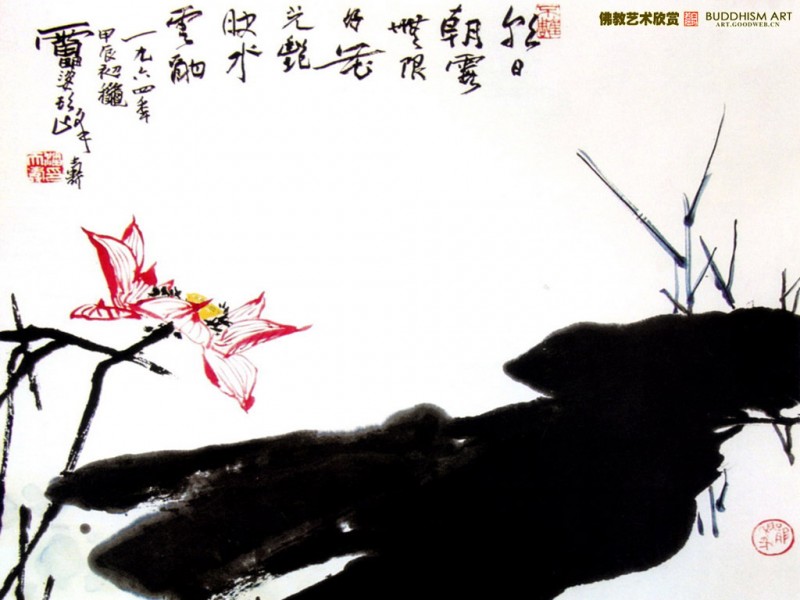 佛教艺术欣赏 BUDDHISM ART
ART.GOODWEB.CN
初日
朝霞
無限
好花
光艷
映水
雲酣
一九六四年
甲辰初
雷婆頭峰
壽